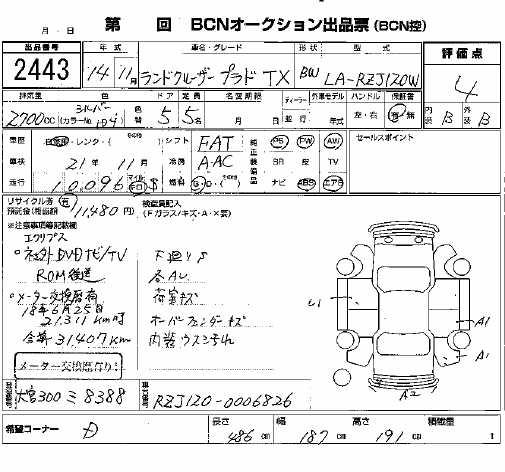 月 日 第 回 BCNオークション出品票(BCN控)
出品番号 年式 車名・グレード 形状 型式 評価点
2443 14年 11月 ランドクルーザー プラド TX BW LA-RZJ120W 4
排気量 色 色替 ドア 定員 名変期限 ディーラー 外車モデル ハンドル 保証書 内装 外装
2700cc シルバー (カラーNo.1D4) 5 5名 月 日 並行 年式 左・右 有・無 B B
車歴 自家用・レンタ・( その他 ) シフト FAT 純正装備品 PS PW AW セールスポイント
車検 21年 11月 冷房 AAC SR 皮 TV
走行 マイル キロ 燃料 G・D・( その他 ) ナビ ABS エアB
リサイクル券 有 預託金(相当額) 11,480円) 検査員記入
(Fガラス/キズ・A・×要)
※注意事項等記載欄
エクリプス
DVDナビ/TV 下廻りS
ROM 各AU
メーター交換歴有 荷室キズ
18年6月25日
21311km時 オーバーフェンダーキズ
合算31407km 内装ウスヨゴレ
U1 A1 A1 A2
メーター交換歴有り
大宮300 ミ 8388 RZJ120-0006826
希望コーナー D 長さ 486cm 幅 187cm 高さ 191cm 積載量 t